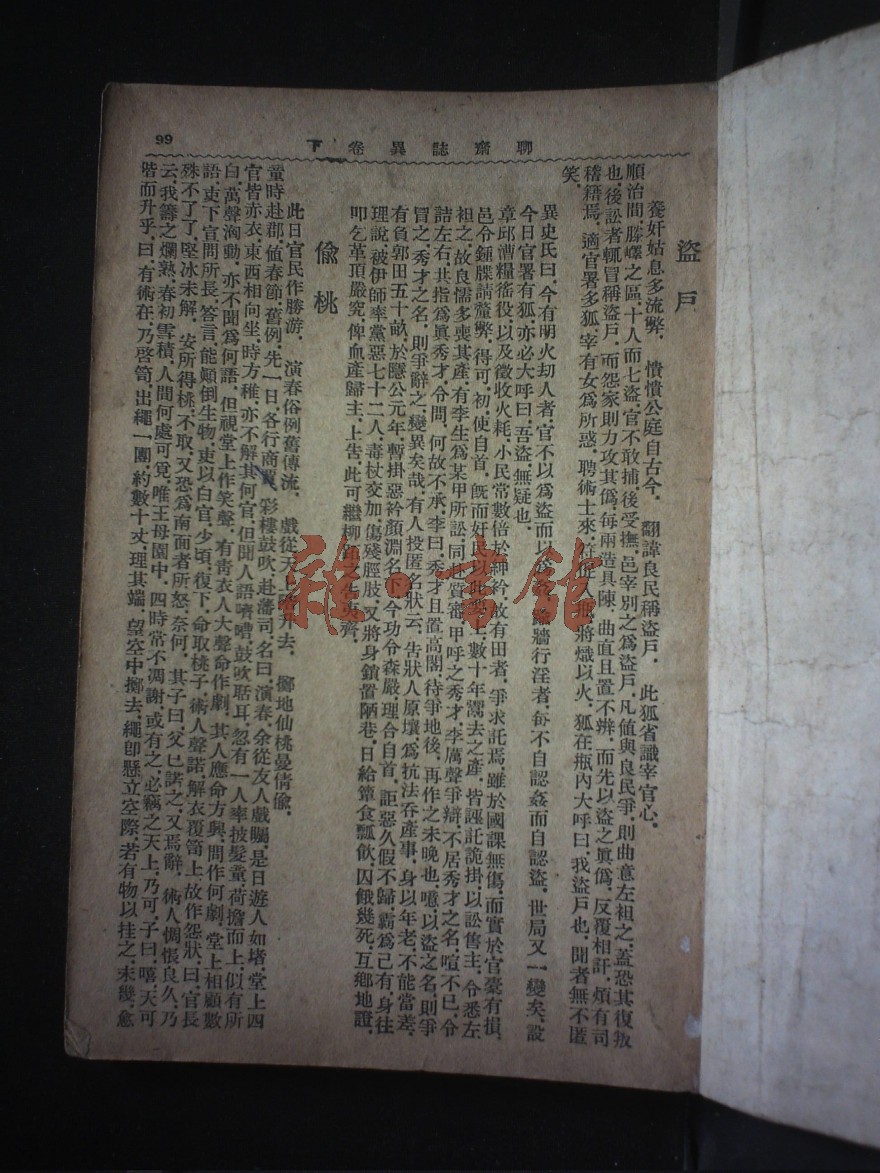 聊齋誌異卷下
99
盜戶
養奸姑息多流弊．憒憒公庭自古今．翻諱良民稱盜戶．此狐省識宰官心．
順治間、滕嶧之區、十人而七盜、官不敢捕、後受撫、邑宰別之爲盜戶、凡値與良民爭、則曲意左袒之、蓋恐其復叛
也、後訟者輒冒稱盜戶、而怨家則力攻其僞、每兩造具陳、曲直且置不辨、而先以盜之眞僞、反覆相訐、煩有司
稽籍焉、適官署多狐、宰有女爲所惑、聘術士來、符捉入瓶、將熾以火、狐在瓶內大呼曰、我盜戶也、聞者無不匿
笑．
異史氏曰、今有明火刧人者、官不以爲盜而以爲姦、踰牆行淫者、每不自認姦而自認盜、世局又一變矣、設
今日官署有狐、亦必大呼曰、吾盜、無疑也．
章邱漕糧徭役、以及徵收火耗、小民常數倍於紳衿、故有田者、爭求託焉、雖於國課無傷、而實於官橐有損、
邑令鍾牒請釐弊、得可、初使自首、旣而奸民以此要上、數十年鬻去之產、皆誣託詭掛、以訟售主、令悉左
袒之、故良懦多喪其產、有李生爲某甲所訟、同赴質審、甲呼之秀才、李厲聲爭辯、不居秀才之名、喧不已、令
詰左右、共指爲眞秀才、令問、何故不承、李曰、秀才且置高閣、待爭地後、再作之未晚也、噫、以盜之名、則爭
冒之、秀才之名、則爭辭之、變異矣哉、有人投匿名狀云、告狀人原壤、爲抗法吞產事、身以年老、不能當差、
有負郭田五十畝、於隱公元年、暫掛惡衿顏淵名下、今功令森嚴、理合自首、詎惡久假不歸、霸爲己有、身往
理說、被伊師率黨惡七十二人、毒杖交加、傷殘脛肢、又將身鎖置陋巷、日給簞食瓢飲、囚餓幾死、互鄉地證、
叩乞革頂嚴究、俾血產歸主、上告、此可繼柳跖之告夷齊．
偸桃
此日官民作勝游．演春俗例舊傳流．戲從天上階升去．擲地仙桃曼倩偸．
童時赴郡、値春節、舊例、先一日、各行商賈、彩樓鼓吹、赴藩司、名曰、演春、余從友人戲矚、是日遊人如堵、堂上四
官皆赤衣、東西相向坐、時方稚、亦不解其何官、但聞人語嘈嘈、鼓吹聒耳、忽有一人率披髮童、荷擔而上、似有所
白、萬聲洶動、亦不聞爲何語、但視堂上作笑聲、有靑衣人大聲命作劇、其人應命方興、問作何劇、堂上相顧數
語、吏下宣問所長、答言、能顚倒生物、吏以白官、少頃、復下、命取桃子、術人聲諾、解衣覆笥上、故作怨狀、曰、官長
殊不了了、堅冰未解、安所得桃、不取、又恐爲南面者所怒、奈何、其子曰、父已諾之、又焉辭、術人惆悵良久、乃
云、我籌之爛熟、春初雪積、人間何處可覓、唯王母園中、四時常不凋謝、或有之、必竊之天上、乃可、子曰、嘻、天可
階而升乎、曰、有術在、乃啓笥、出繩一團、約數十丈、理其端、望空中擲去、繩卽懸立空際、若有物以挂之、未幾、愈
雜·書館